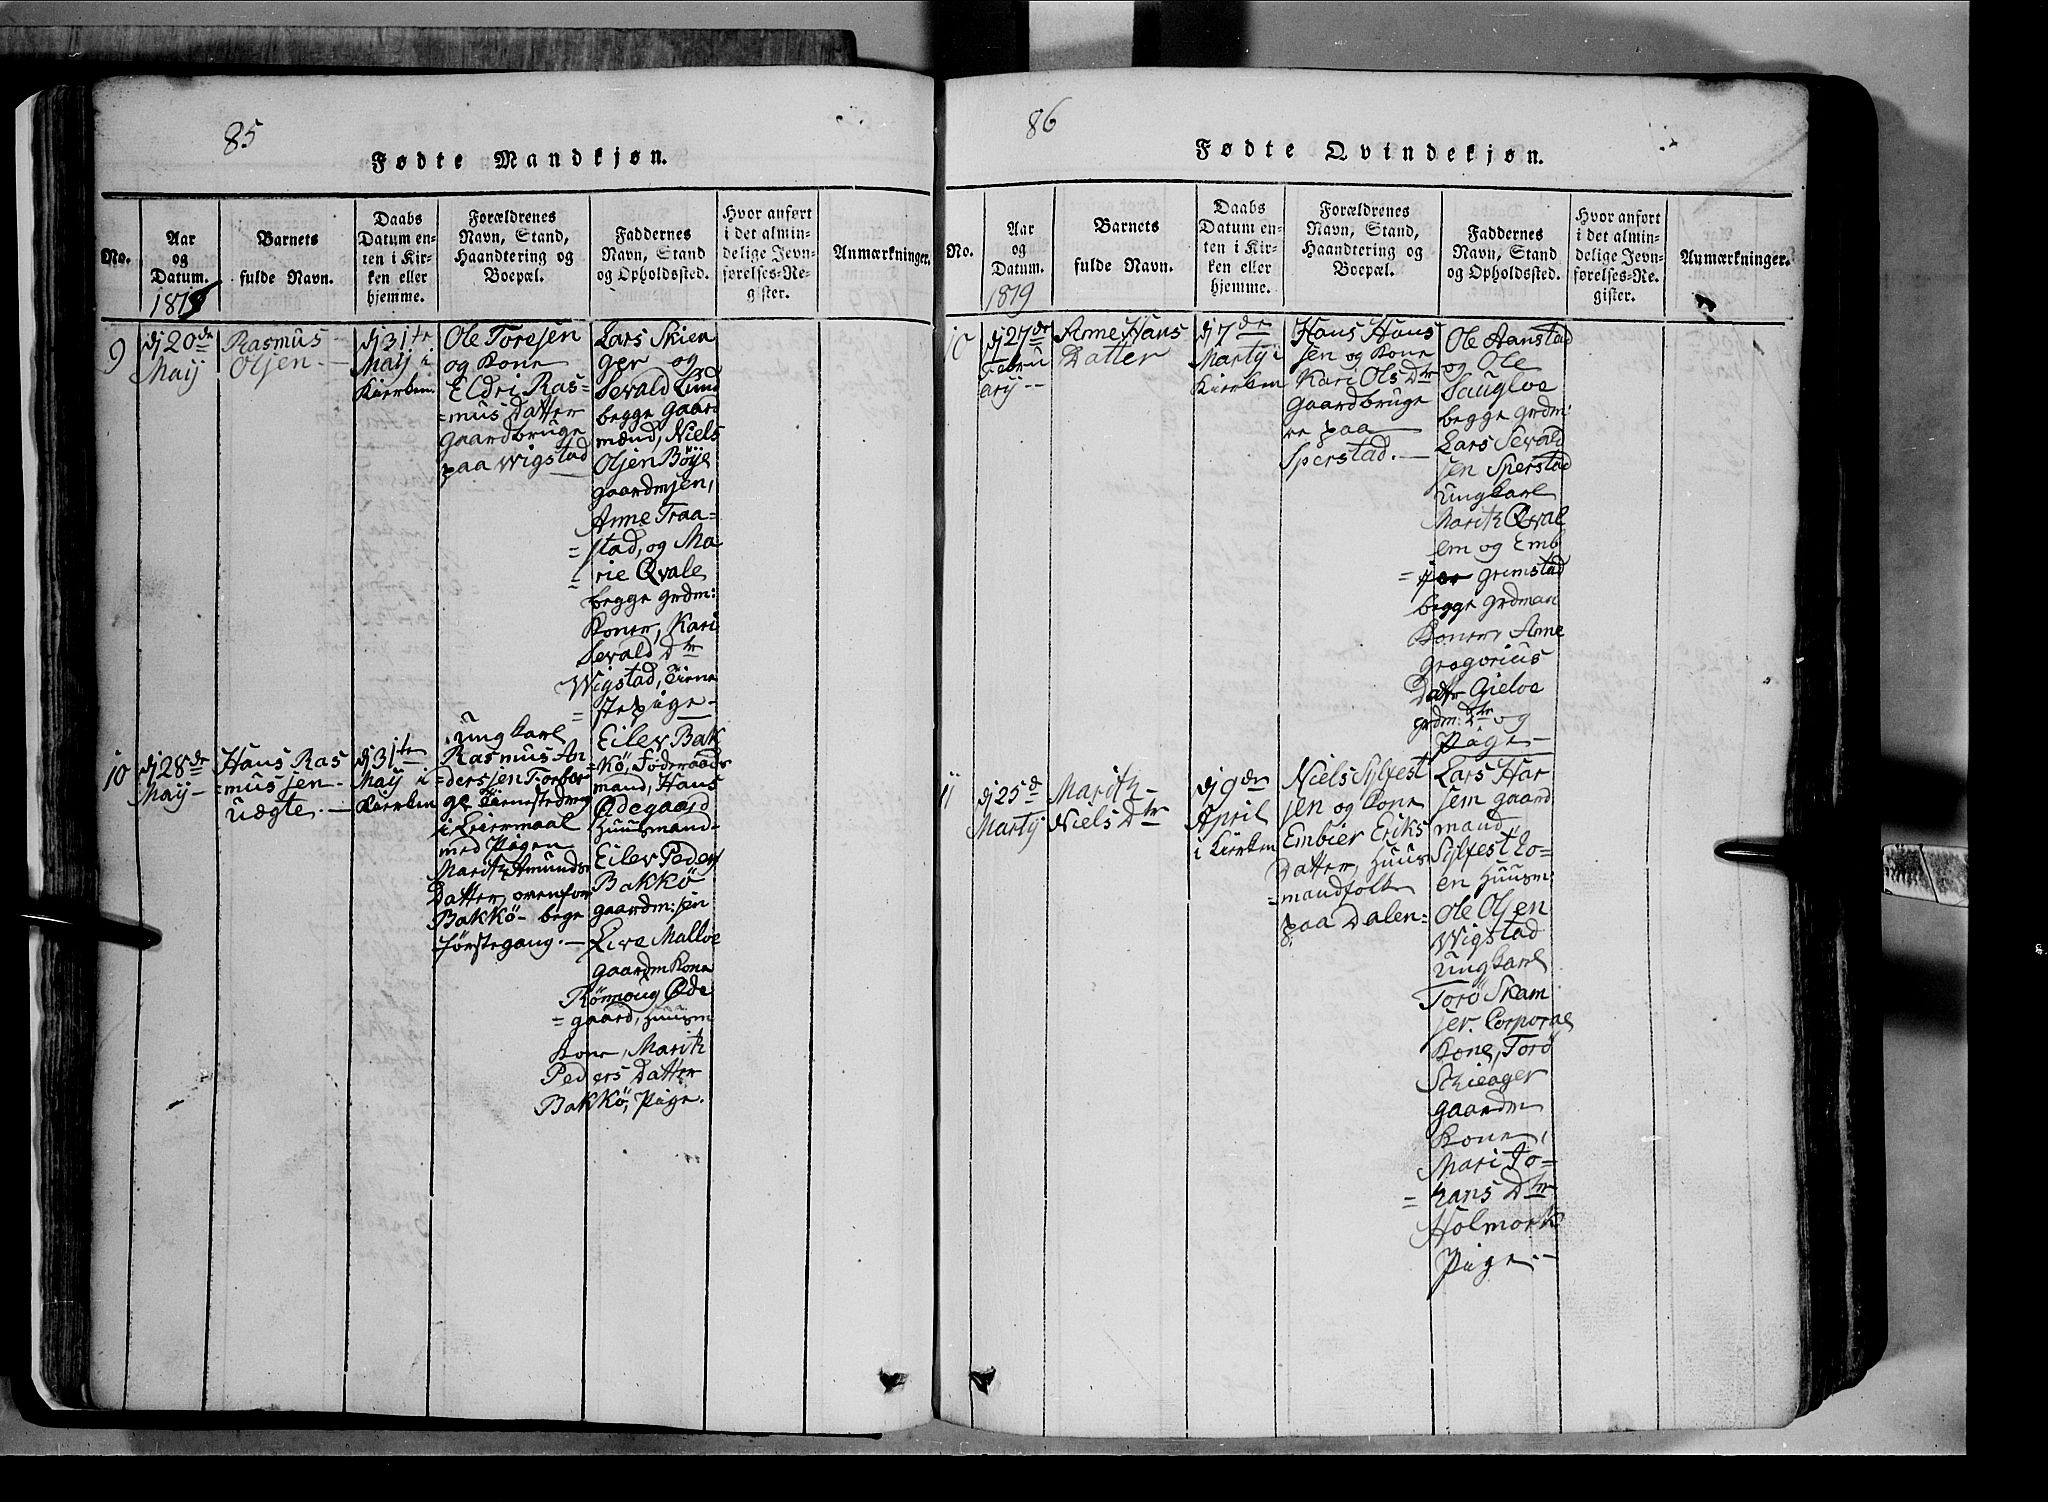 85
Fødte Mandkjøn.
No.
Aar
og
Datum.
1819
Barnets
fulde Navn.
Daabs
Datum en-
ten i Kir-
ken eller
hjemme.
Forældrenes
Navn, Stand,
Haandtering og
Boepæl.
Faddernes
Navn, Stand
og Opholdsted.
Hvor anført
i det almin-
delige Jevn-
førelses-Re-
gister.
Anmærkninger.
9
dj 20de
Maij
Rasmus
Olsen
dj 31te
Maij i
Kierken
Ole Toresen
og Kone
Eldri Ras-
=mus Datter
Gaardbruge
paa Wigstad
Lars Skien
ger og
Sevald Lund
begge Gaard
mænd, Niels
Olsen Böye
gaardmsen,
Anne Traa=
=stad, og Ma
=rie Qvale
begge grdm:
Koner, Kari
Sevald Dtr
Wigstad, Tiene
=stepige
10
dj 28de
Maij
Hans Ras
mussen
uægte.
dj 31te
Maij i
Kierken
ungkarl
Rasmus An
=derssen
i Leiermaal
med Pigen
Marith Amunds
Datter, ovenfor
Bakkö - bege
förstegang.
Eilev Bak
=kö, Föderaads
mand, Hans
Ødegaard
Huusmand
Eilev Peders
Bakkö
gaardm: sen
Live Malloe
gaardm Kone
Rönnoug Øde
=gaard, Huusm
Kone, Marith
Peders Datter
Bakkö, Pige.
86
Fødte Qvindekjøn.
No.
Aar
og
Datum.
1819
Barnets
fulde Navn.
Daabs
Datum en-
ten i Kir-
ken eller
hjemme.
Forældrenes
Navn, Stand,
Haandtering og
Boepæl.
Faddernes
Navn, Stand
og Opholdssted.
Hvor anført
i det almin-
delige Jevn-
førelses-Re-
gister.
Anmærkninger.
10
dj 27de
Febru
arij
Anne Hans
Datter
dj 7de
Martij i
Kierken
Hans Hans
sen og Kone
Kari Ols Dtr
Gaardbruge
re paa
Sperstad.
Ole Aanstad
og Ole
Saugloe
begge grdm:
Lars Sevald
sen Sperstad
ungkarl
Marith Qval
em og Emb
= grimstad
begge grdman
Koner, Anne
Gregorius
Dattr Gieloe
grdm: Dtr og
Pige
11
dj 25de
Martij
Marith
Niels Dtr
dj 9de
April
i Kierken
Niels Sylfest
sen og Kone
Embier Eriks
Datter, Huus
=mandfolk
paa Dalen
Lars Har
sem gaard
mand,
Sylfest Lo=
en Huusm:
Ole Olsen
Wigstad
ungkarl
Torö Skam
ser. Corporal
Kone, Torö
Schieager
gaardm
Kone,
Mari Jo=
=hans Dtr
Holmork
Pige.